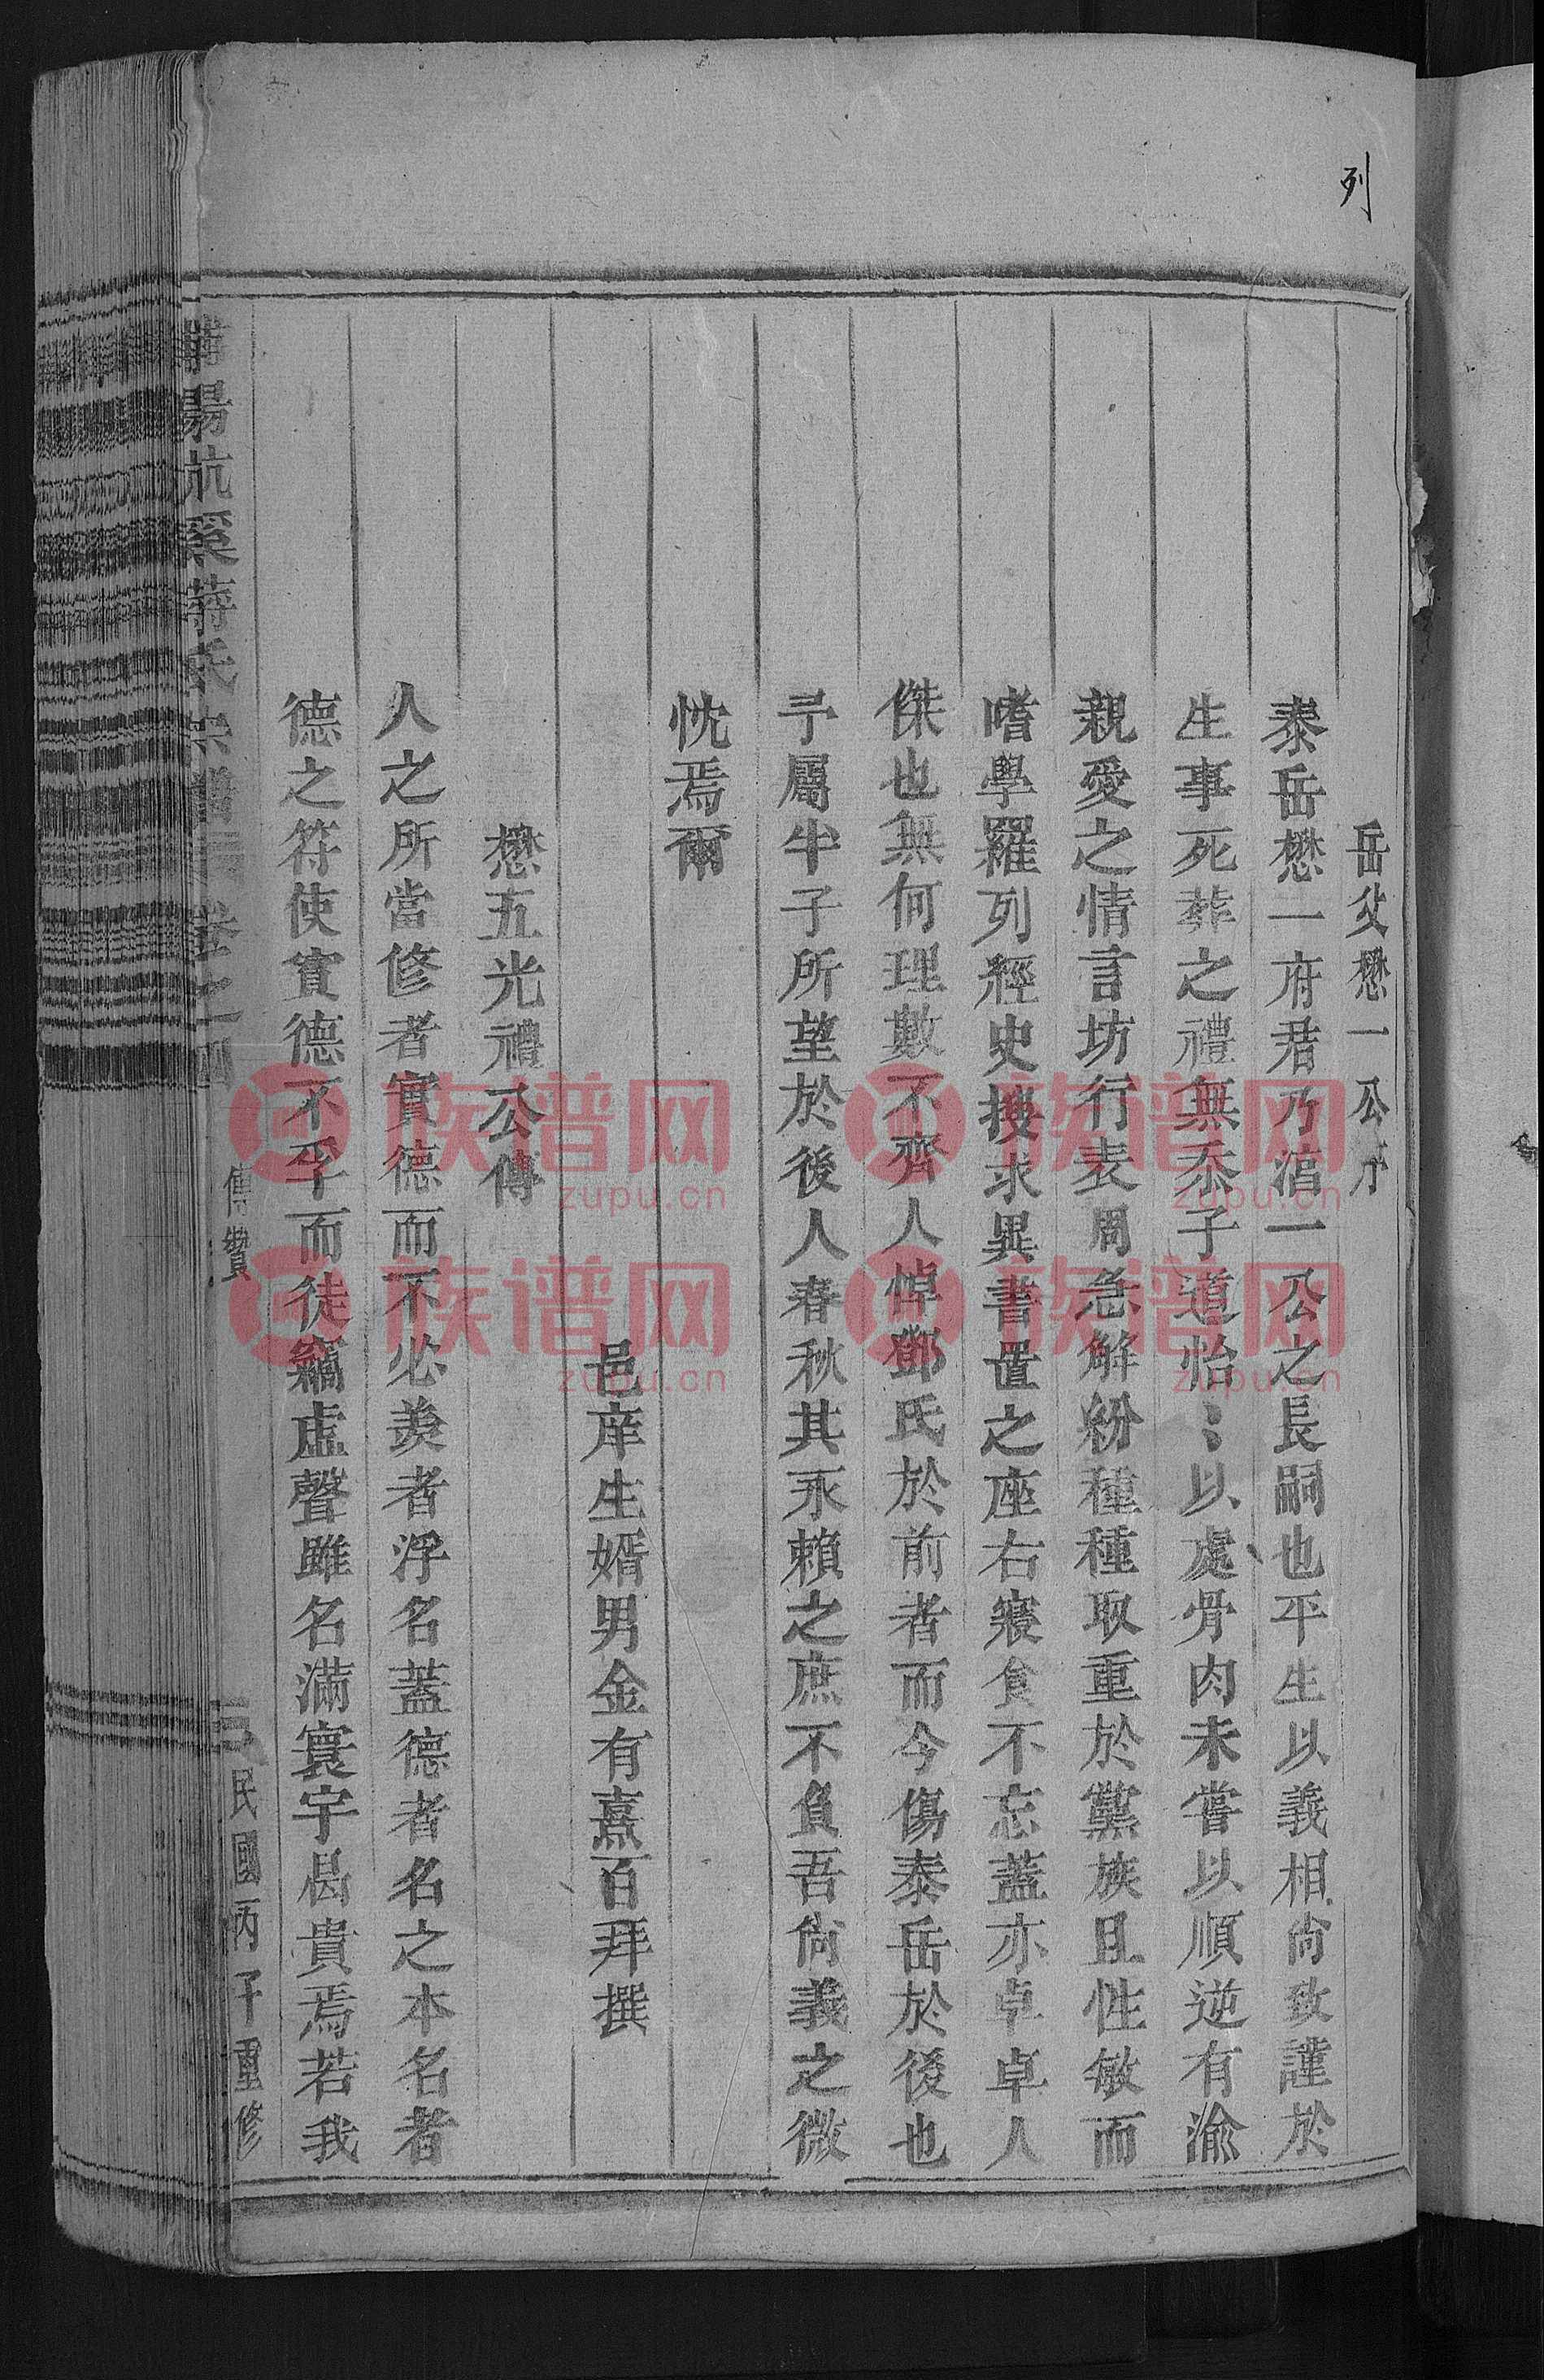 列
岳父懋一公序
泰岳懋一府君乃涫一公之長嗣也平生以義相尙致謹於
生事死葬之禮無忝子道怡〻以處骨肉未嘗以順逆有渝
親愛之情言坊行表周急解紛種種取重於黨族且性敏而
嗜學羅列經史搜求異書置之座右寢食不忘蓋亦卓卓人
傑也無何理數不齊人悼鄧氏於前者而今傷泰岳於後也
予屬半子所望於後人春秋其永賴之庶不負吾尙義之微
忱焉爾
邑庠生婿男金有熹百拜撰
懋五光禮公傳
人之所當修者實德而不必羨者浮名蓋德者名之本名者
德之符使實德不孚而徒竊虛聲雖名滿寰宇曷貴焉若我
陽杭溪蔣氏宗譜 卷之一 傳贊 民國丙子重修
族谱网
zupu.cn
族谱网
zupu.cn
族谱网
zupu.cn
族谱网
zupu.cn